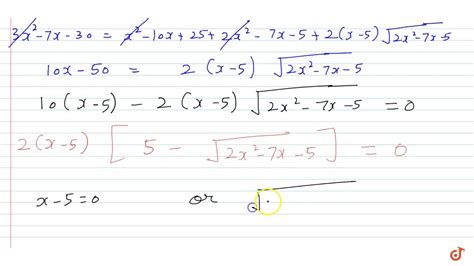 3x²-7x-30 = x²-10x+25+2x²-7x-5+2(x-5)√2x²-7x-5
10x-50 = 2(x-5)√2x²-7x-5
10(x-5) - 2(x-5)√2x²-7x-5 = 0
2(x-5)[5-√2x²-7x-5] = 0
x-5=0 or √